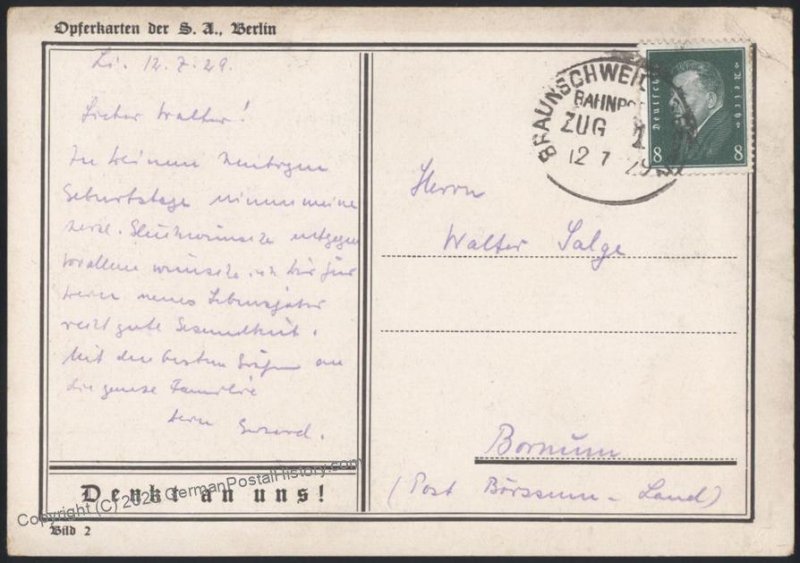 Opferkarten der S. A., Berlin
Li. 12.7.29.
Lieber Walter!
Zu Deinem heutigen
Geburtstage nimm meine
herzl. Glückwünsche entgegen
Vor allem wünsche ich Dir für
Dein neues Lebensjahr
recht gute Gesundheit.
Mit den besten Grüßen an
die ganze Familie
Dein
Denkt an uns!
Bild 2
BRAUNSCHWEIG
BAHNPO
ZUG
12 7 29
Deutsches Reich
8 8
Herrn
Walter Salge
Bornum
(Post Börssum - Land)
Copyright (C) 2023 GermanPostalHistory.com